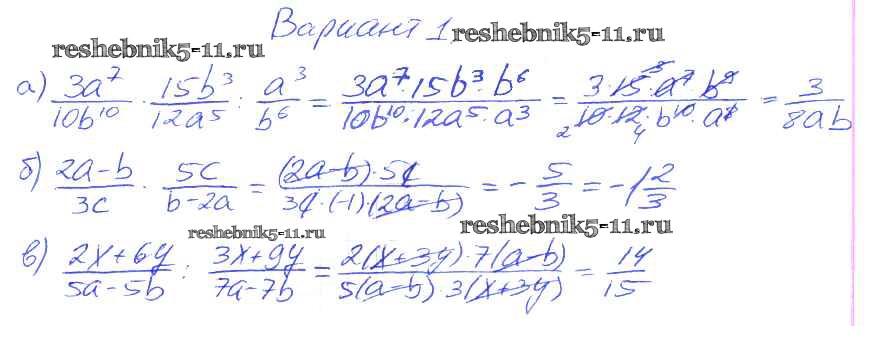 Вариант 1
reshebnik5-11.ru
reshebnik5-11.ru
а) 3a⁷/10b¹⁰ · 15b³/12a⁵ : a³/b⁶ = 3a⁷·15b³·b⁶/10b¹⁰·12a⁵·a³ = 3·15·a⁷·b⁹/10·12·b¹⁰·a⁸ = 3/8ab
б) 2a-b/3c · 5c/b-2a = (2a-b)·5c/3c·(-1)(2a-b) = -5/3 = -1 2/3
reshebnik5-11.ru
reshebnik5-11.ru
в) 2x+6y/5a-5b : 3x+9y/7a-7b = 2(x+3y)·7(a-b)/5(a-b)·3(x+3y) = 14/15